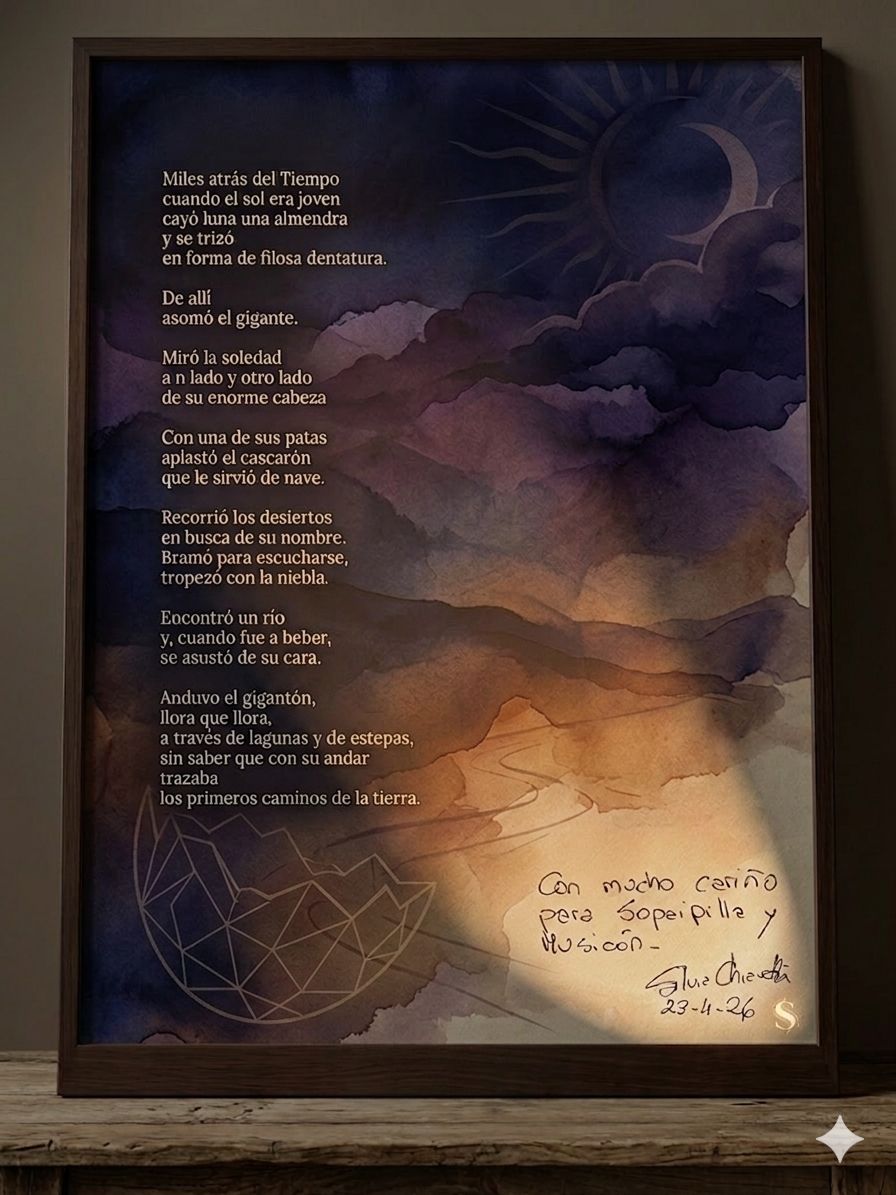 Miles atrás del Tiempo
cuando el sol era joven
cayó luna una almendra
y se trizó
en forma de filosa dentatura.
De allí
asomó el gigante.
Miró la soledad
a n lado y otro lado
de su enorme cabeza
Con una de sus patas
aplastó el cascarón
que le sirvió de nave.
Recorrió los desiertos
en busca de su nombre.
Bramó para escucharse,
tropezó con la niebla.
Eocontró un río
y, cuando fue a beber,
se asustó de su cara.
Anduvo el gigantón,
llora que llora,
a través de lagunas y de estepas,
sin saber que con su andar
trazaba
los primeros caminos de la tierra.
Con mucho cariño
para Sopaipilla y
Musicón-
23-4-26
S